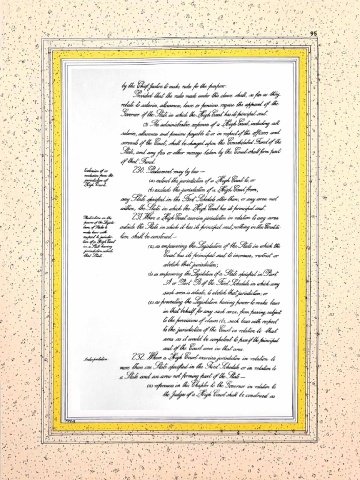 95
by the Chief Justice to make rules for the purpose:
Provided that the rules made under this clause shall, so far as they
relate to salaries, allowances, leave or pensions, require the approval of the
Governor of the State in which the High Court has its principal seat.
(3) The administrative expenses of a High Court, including all
salaries, allowances and pensions payable to or in respect of the officers and
servants of the Court, shall be charged upon the Consolidated Fund of the
State, and any fees or other moneys taken by the Court shall form part
of that Fund.
230. Parliament may by law—
(a) extend the jurisdiction of a High Court to, or
(b) exclude the jurisdiction of a High Court from,
any State specified in the First Schedule other than, or any area not
within, the State in which the High Court has its principal seat.
231. Where a High Court exercises jurisdiction in relation to any area
outside the State in which it has its principal seat, nothing in this Constitu-
tion shall be construed—
(a) as empowering the Legislature of the State in which the
Court has its principal seat to increase, restrict or
abolish that jurisdiction;
(b) as empowering the Legislature of a State specified in Part
A or Part B of the First Schedule in which any
such area is situate, to abolish that jurisdiction; or
(c) as preventing the Legislature having power to make laws
in that behalf for any such area, from passing, subject
to the provisions of clause (b), such laws with respect
to the jurisdiction of the Court in relation to that
area as it would be competent to pass if the principal
seat of the Court were in that area.
Interpretation
232. Where a High Court exercises jurisdiction in relation to
more than one State specified in the First Schedule or in relation to
a State and an area not forming part of the State—
(a) references in this Chapter to the Governor in relation to
the Judges of a High Court shall be construed as